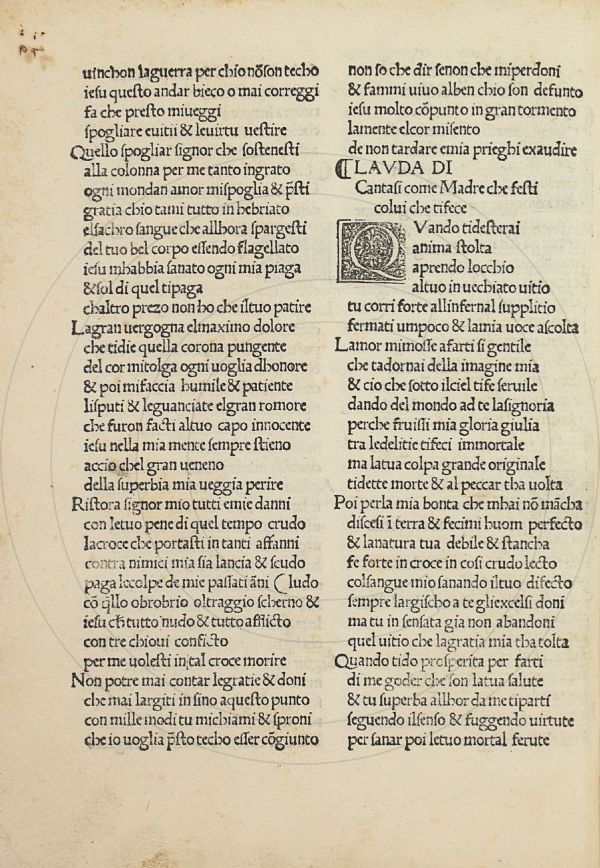 uinchon laguerra per chio nõson techo
iesu questo andar bieco o mai correggi
fa che presto miueggi
spogliare euitii & leuirtu uestire
Quello spogliar signor che sostenesti
alla colonna per me tanto ingrato
ogni mondan amor mispoglia & p̃sti
gratia chio tami tutto in hebriato
elsacbro sangue che allhora spargesti
del tuo bel corpo essendo flagellato
iesu mhabbia sanato ogni mia piaga
& sol di quel tipaga
chaltro prezo non ho che iltuo patire
Lagran uergogna elmaximo dolore
che tidie quella corona pungente
del cor mitolga ogni uoglia dhonore
& poi mifaccia humile & patiente
lisputi & leguanciate elgran romore
che furon facti altuo capo innocente
iesu nella mia mente sempre stieno
accio chel gran ueneno
della superbia mia ueggia perire
Ristora signor mio tutti emie danni
con letuo pene di quel tempo crudo
lacroce che portasti in tanti affanni
contra nimici mia sia lancia & scudo
paga lecolpe de mie passati ãni ludo
cõ q̃llo obrobrio oltraggio scherno &
iesu ch̃ tutto nudo & tutto afflicto
con tre chioui conficto
per me uolesti in tal croce morire
Non potre mai contar legratie & doni
che mai largiti in sino aquesto punto
con mille modi tu michiami & sproni
che io uoglia p̃sto techo esser cõgiunto
non so che dir senon che miperdoni
& fammi uiuo alben chio son defunto
iesu molto cõpunto in gran tormento
lamente elcor misento
de non tardare emia prieghi exaudire
LAVDA DI
Cantasi come Madre che festi
colui che tifece
QVando tidesterai
anima stolta
aprendo locchio
altuo in uechiato uitio
tu corri forte allinfernal supplitio
fermati umpoco & lamia uoce ascolta
Lamor mimosse afarti si gentile
che tadornai della imagine mia
& cio che sotto ilciel tife seruile
dando del mondo ad te lasignoria
perche fruissi mia gloria giulia
tra ledelitie tifeci immortale
ma latua colpa grande originale
tidette morte & al peccar tha uolta
Poi perla mia bonta che mhai nõ mãcha
discesi ĩ terra & fecimi huom perfecto
& lanatura tua debile & stancha
fe forte in croce in cosi crudo lecto
colsangue mio sanando iltuo difecto
sempre largischo a te gliexcelsi doni
ma tu in sensata gia non abandoni
quel uitio che lagratia mia tha tolta
Quando tido prosperita per farti
di me goder che son latua salute
& tu superba allhor da me tiparti
seguendo ilsenso & fuggendo uirtute
per sanar poi letuo mortal ferute